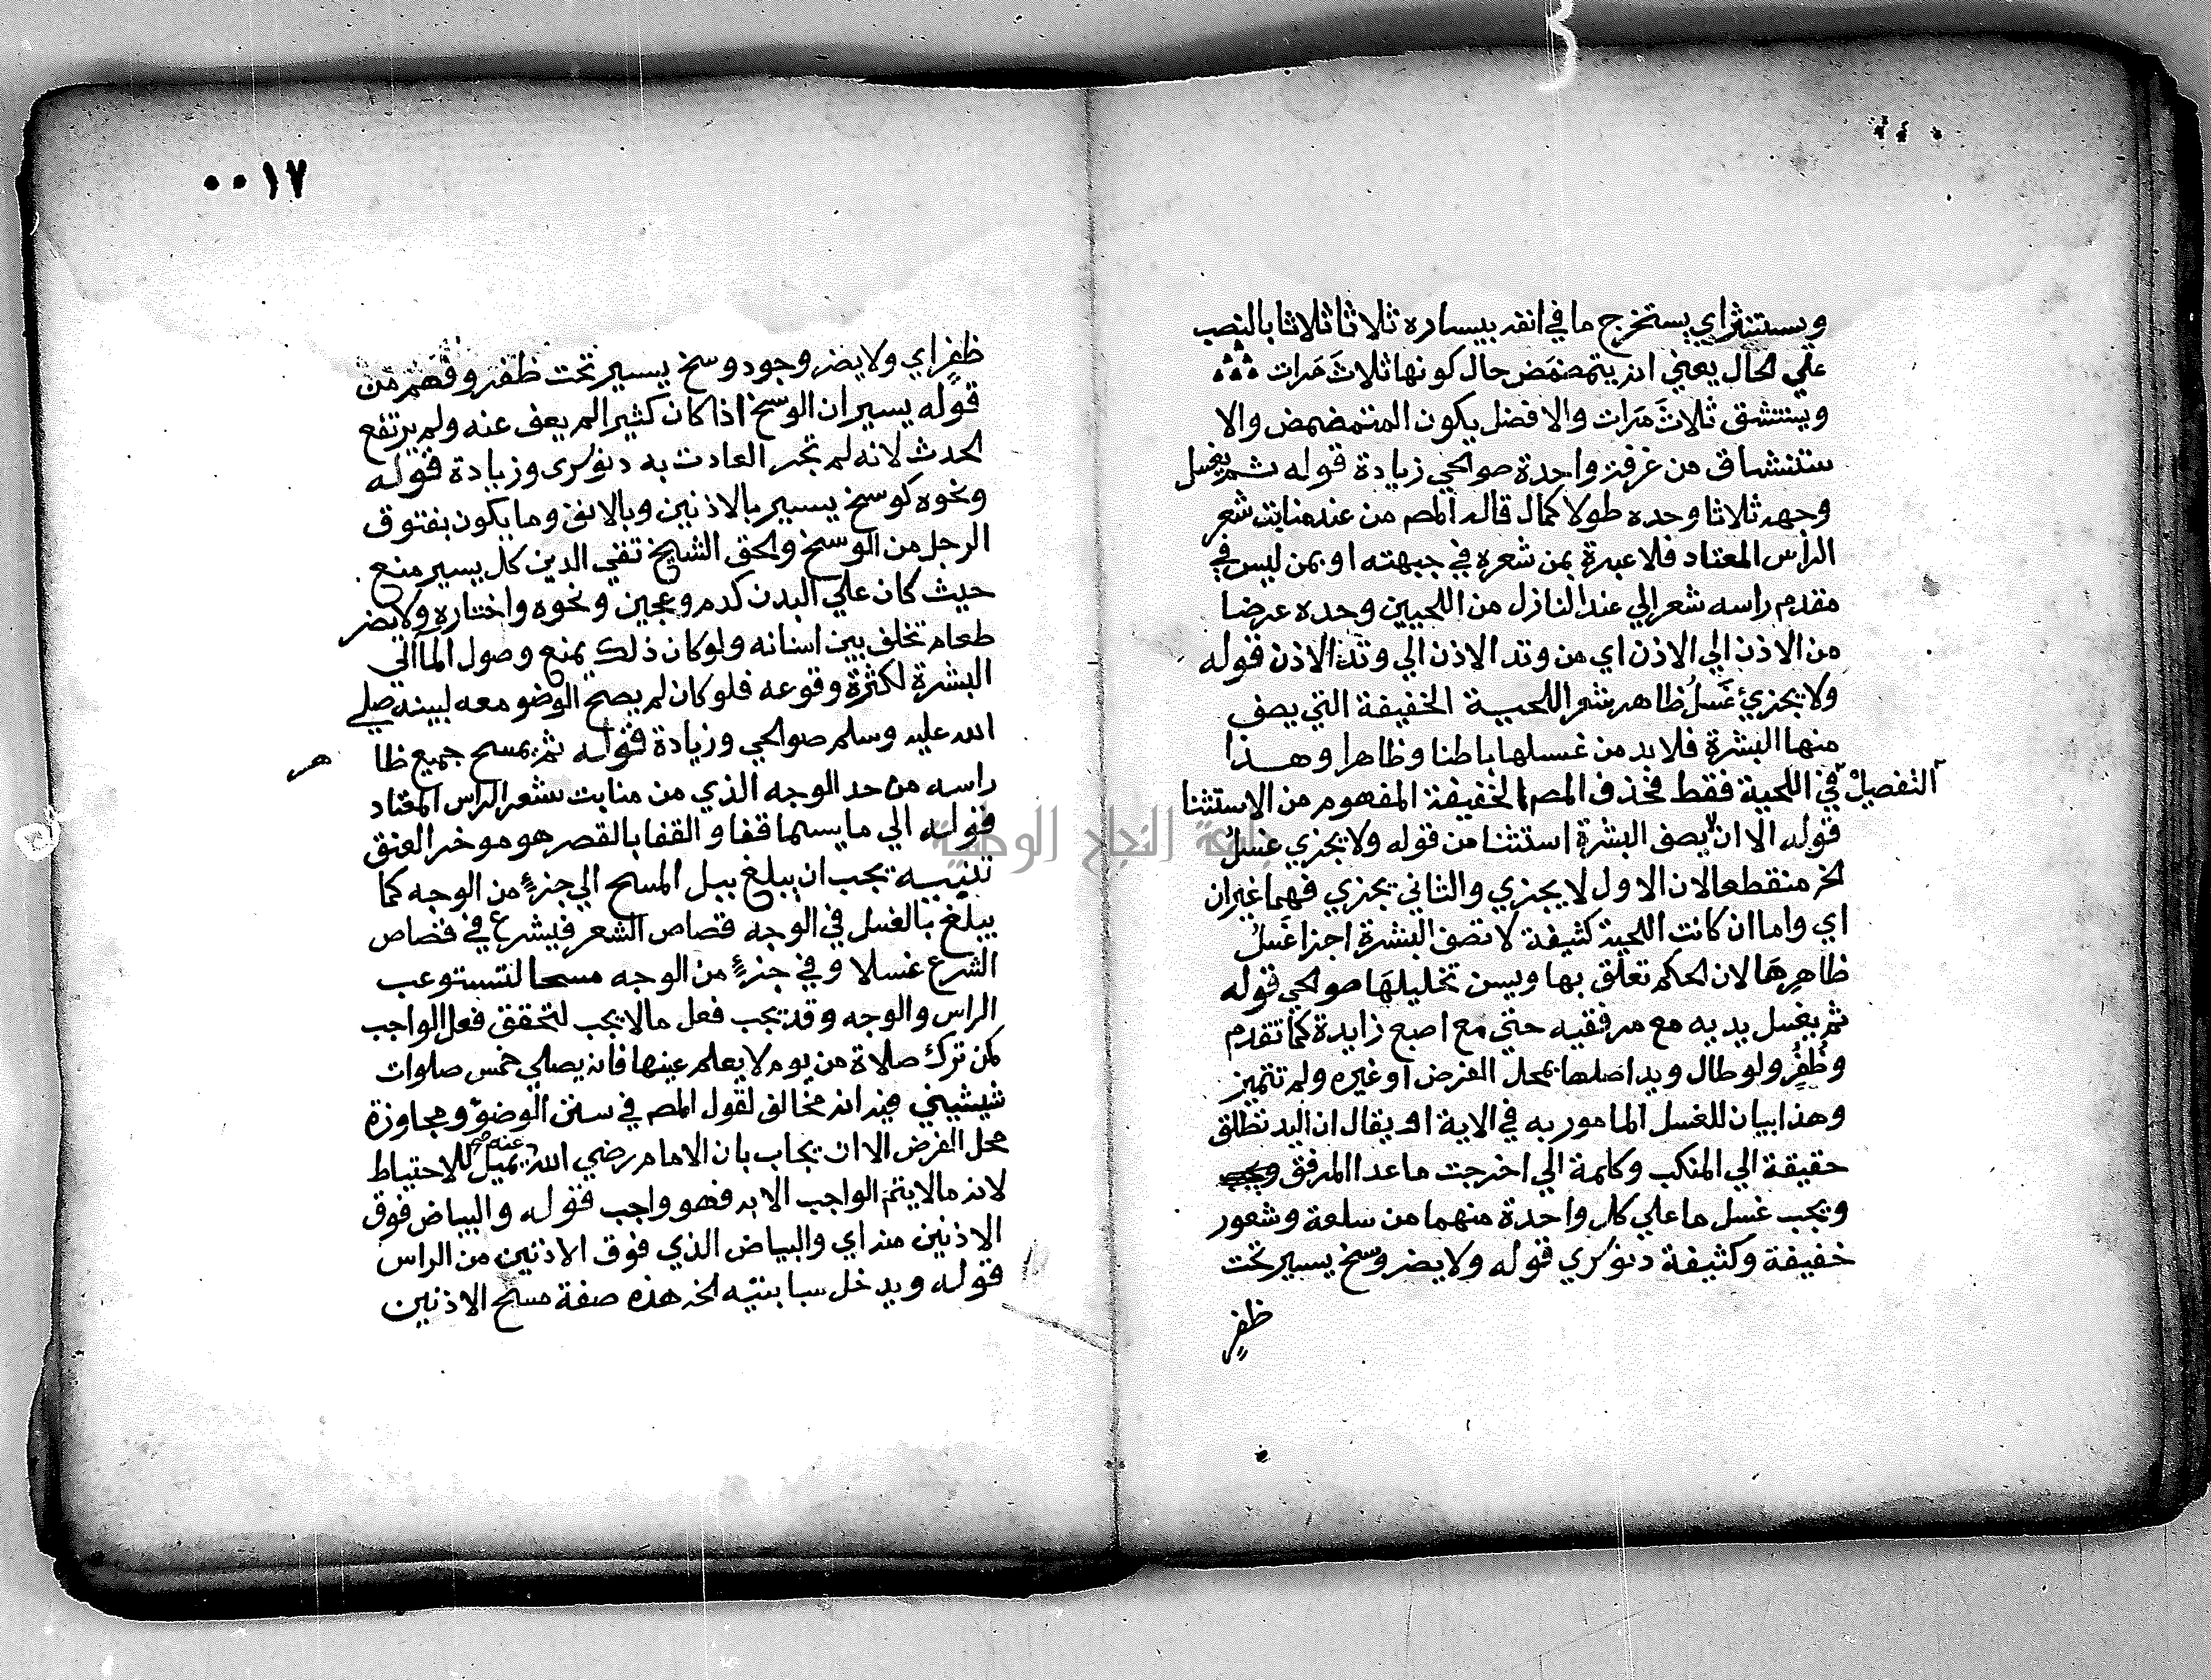 ويستنثر اي يستخرج ما في انفه بيساره ثلاثا ثلاثا بالنصب
علي الحال يعني انه يتمضمض حال كونها ثلاثَ مَرات
ويستنشق ثلاثَ مَرات والافضل يكون المتمضمض والا
ستنشاق من غرفة واحدة صوالحي زيادة قوله ثم يغسل
وجهه ثلاثا وحده طولا كمال قاله المصم من عند منابت شعر
الراس المعتاد فلا عبرة بمن شعره في جبهته او بمن ليس في
مقدم راسه شعر الي عند النازل من اللحيين وحده عرضا
من الاذن الي الاذن اي من وتد الاذن الي وتد الاذن قوله
ولا يجزيُ غَسلُ ظاهر شعر اللحية الخفيفة التي يصف
منها البشرة فلا بد من غسلها باطنا وظاهرا وهذا
التفصيل في اللحية فقط فحذف المصم الخفيفة المفهوم من الاستثنا
قوله الا ان لا يصف البشرة استثنا من قوله ولا يجزي غسل
الخ منقطعا لان الاول لا يجزي والثاني يجزي فهما غيران
اي واما ان كانت اللحية كثيفة لا تصف البشرة اجزا غَسلُ
ظاهِرِهَا لان الحكم تعلق بها ويسن تخليلهَا صوالحي قوله
ثم يغسل يديه مع مرفقيه حتي مع اصبع زايدة كما تقدم
وظُفْرٍ ولو طال ويد اصلها بمحل الفرض او غيره ولم تتميز
وهذا بيان للغسل المامور به في الاية اذ يقال ان اليد تطلق
حقيقة الي المنكب وكلمة الي اخرجت ما عدا المرفق
ويجب غسل ما علي كل واحدة منهما من سلعة وشعور
خفيفة وكثيفة دنوشري قوله ولا يضر وسخ يسير تحت
ظفرٍ
٠٠١٧
ظفرٍ اي ولا يضر وجود وسخ يسير تحت ظفر وفهم من
قوله يسير ان الوسخ اذا كان كثيرا لم يعف عنه ولم يرتفع
الحدث لانه لم تجر العادت به دنوشرى وزيادة قوله
ونحوه كوسخ يسير بالاذنين وبالانف وما يكون بفتوق
الرجل من الوسخ والحق الشيخ تقي الدين كل يسير منع
حيث كان علي البدن كدم وعجين ونحوه واختاره ولا يضر
طعام تخلف بين اسنانه ولو كان ذلك يمنع وصول الما الى
البشرة لكثرة وقوعه فلو كان لم يصح الوضو معه لبينه صلي
الله عليه وسلم صوالحي وزيادة قوله ثم يمسح جميع ظا
هر
راسه من حد الوجه الذي من منابت شعر الراس المعتاد
قوله الي ما يسما قفا والقفا بالقصر هو موخر العنق
تنبيه يجب ان يبلغ ببل المسح الي جزءٍ من الوجه كما
يبلغ بالغسل في الوجه قصاص الشعر فيشرع في قصاص
الشرع غسلا وفي جزءٍ من الوجه مسحا لتستوعب
الراس والوجه وقد يجب فعل ما لا يجب لتحقق فعل الواجب
كمن ترك صلاة من يوم لا يعلم عينها فانه يصلي خمس صلوات
شيشيني فيه انه مخالف لقول المصم في سنن الوضوء ومجاوزة
محل الفرض الا ان يجاب بان الامام رضي الله عنه يميل للاحتياط
لانه ما لا يتم الواجب الا به فهو واجب قوله والبياض فوق
الاذنين منه اي والبياض الذي فوق الاذنين من الراس
قوله ويدخل سبابتيه الخ هذه صفة مسح الاذنين
جامعة النجاح الوطنية